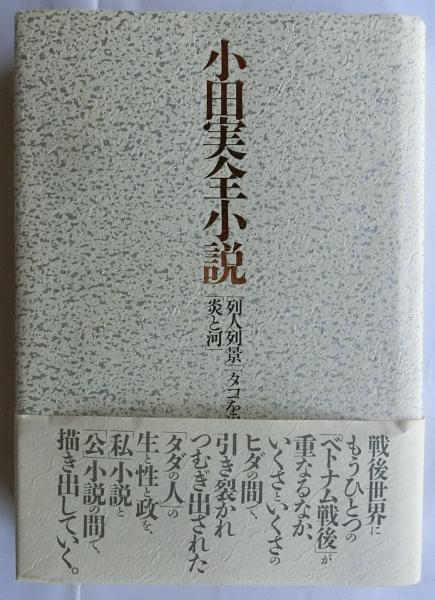 小田実全小説
「列人列景」「タコを
「炎と河」
戦後世界に
もうひとつの
「ベトナム戦後」が
重なるなか、
いくさといくさの
ヒダの間で、
引き裂かれ
つむぎ出された
「タダの人」の
生と性と政を、
「私」小説と
「公」小説の間で、
描き出していく。